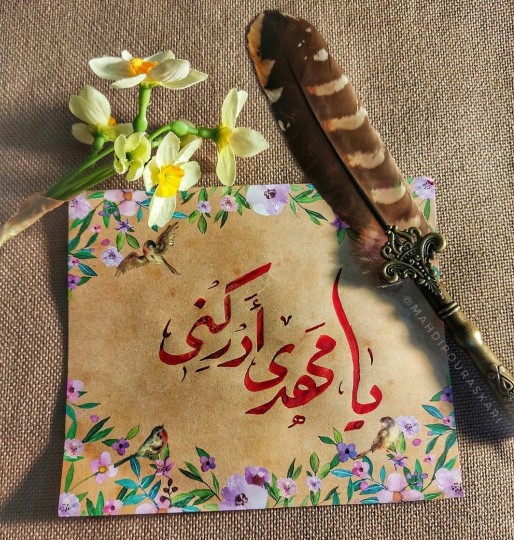 يا مَهدی أَدرِکنی
@MAHDIPOURASKARI